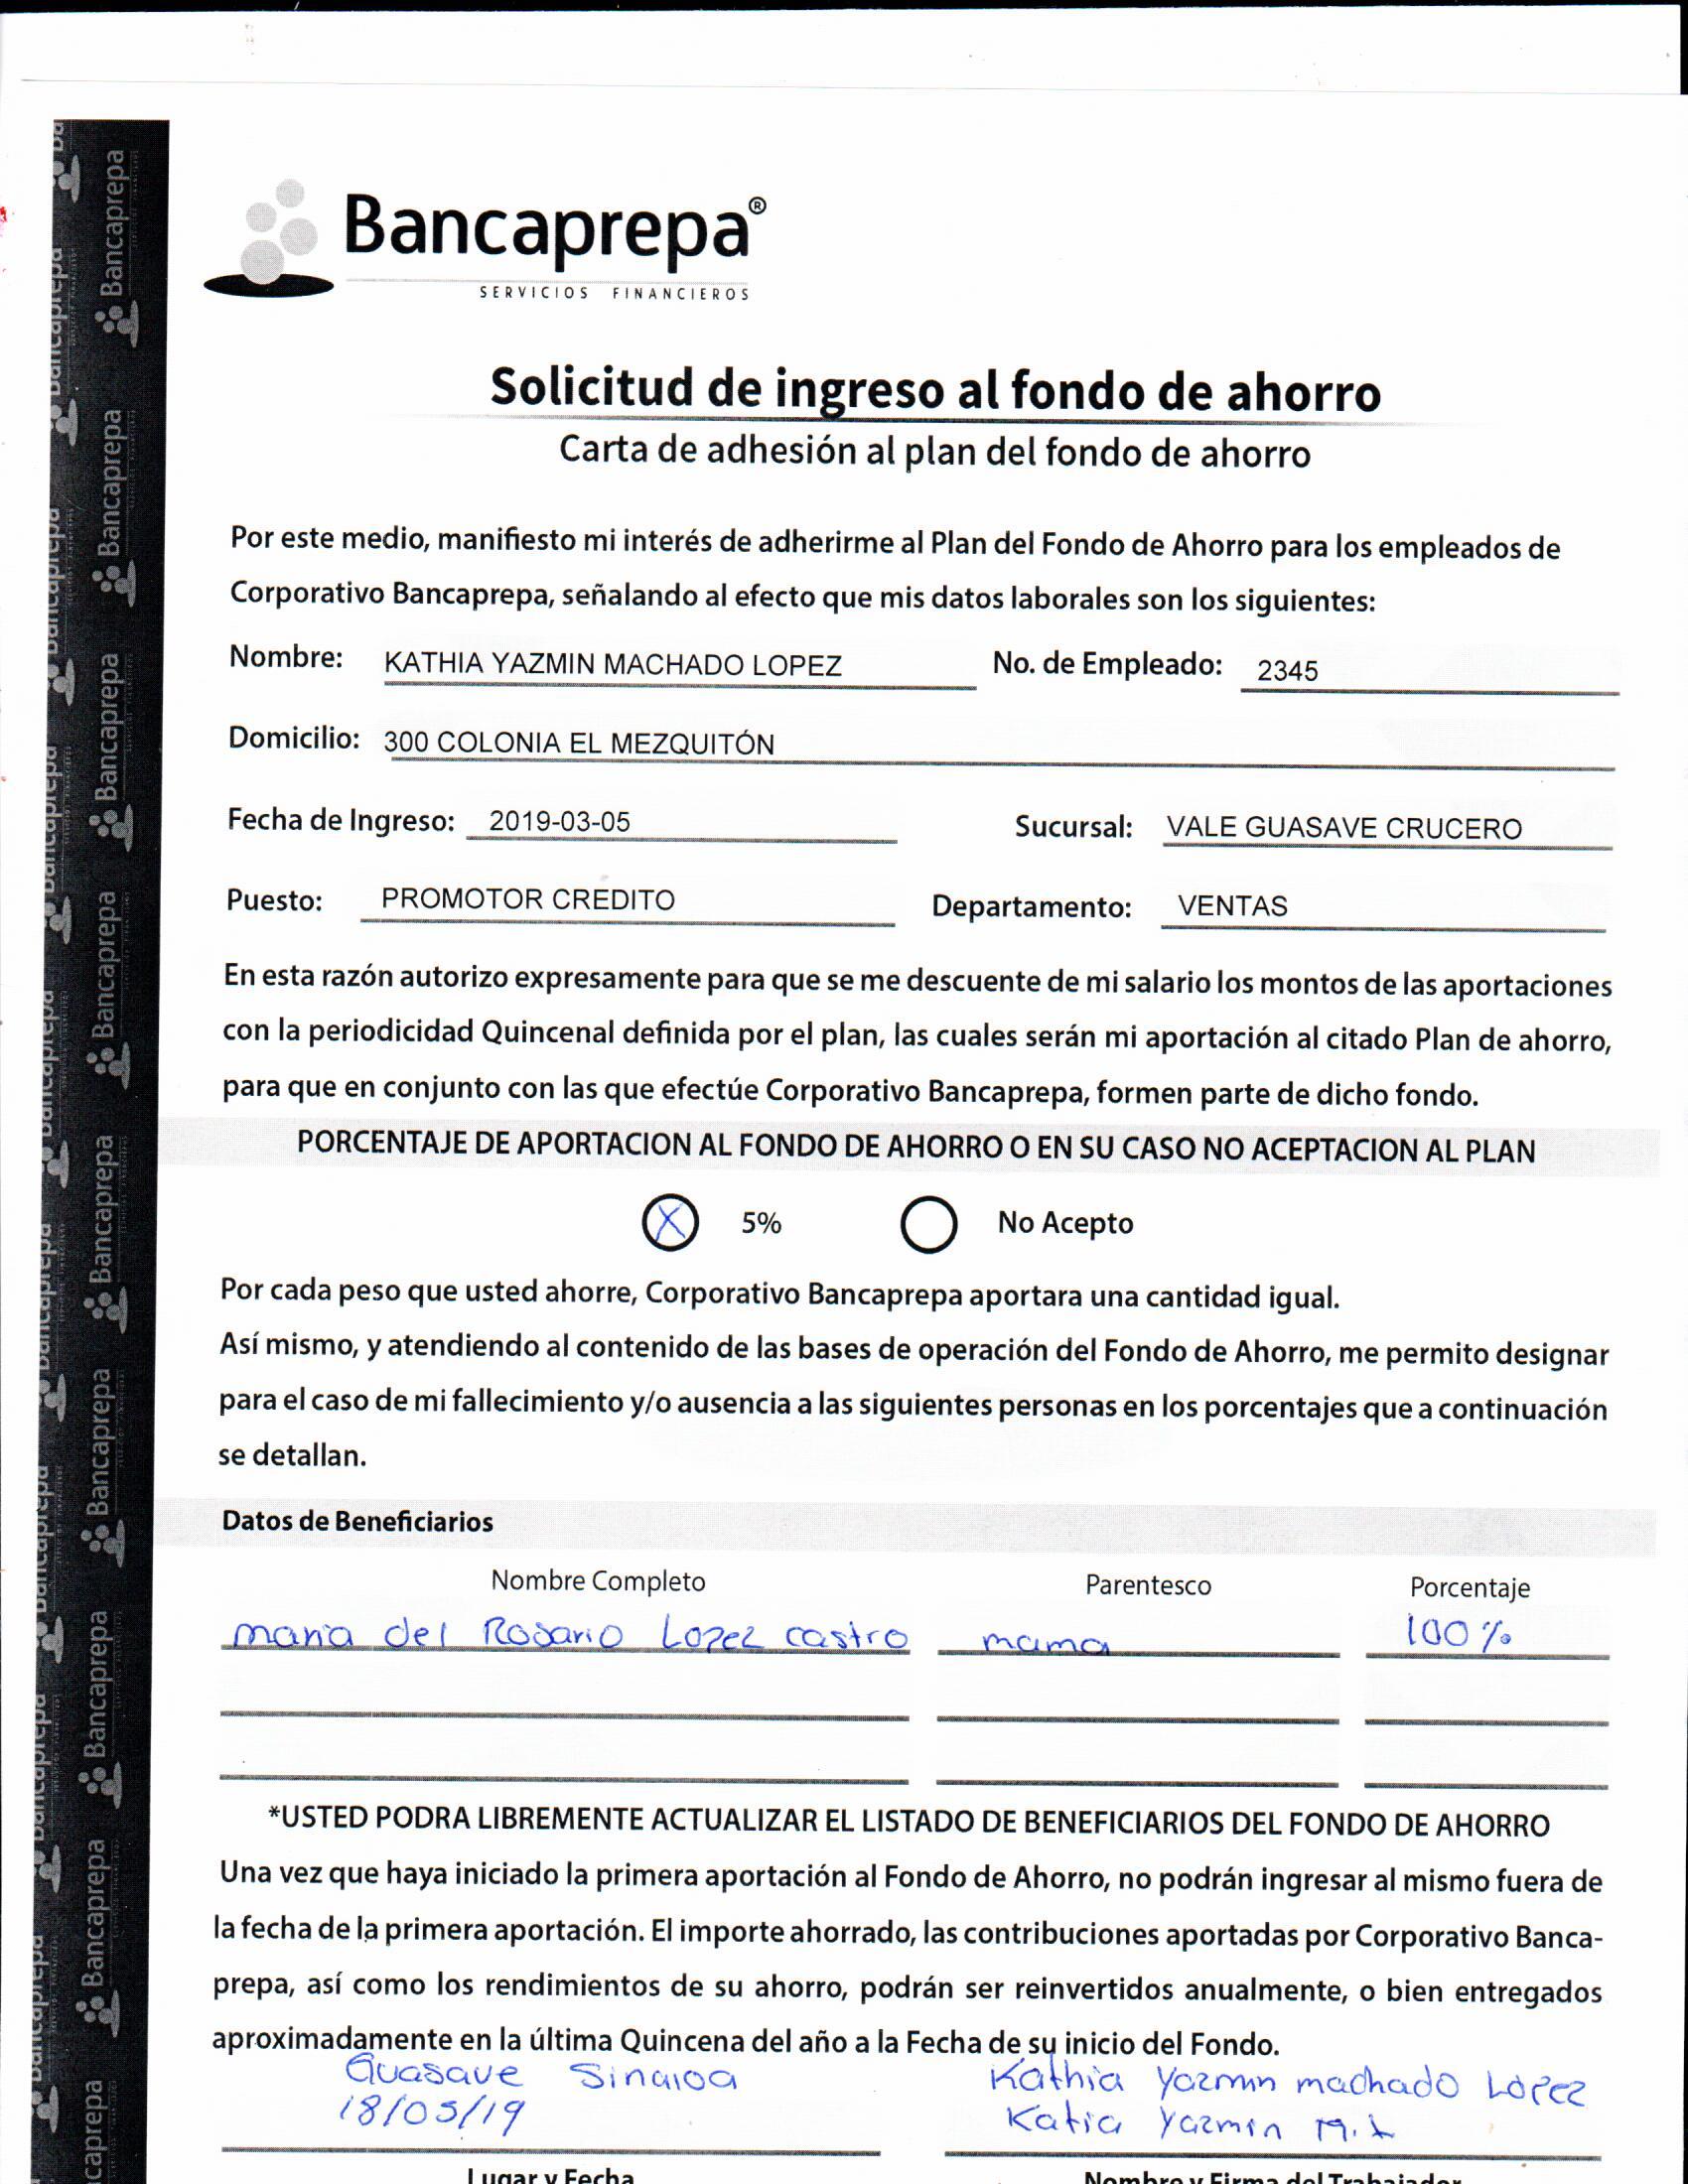 Bancaprepa®
SERVICIOS FINANCIEROS
Solicitud de ingreso al fondo de ahorro
Carta de adhesión al plan del fondo de ahorro
Por este medio, manifiesto mi interés de adherirme al Plan del Fondo de Ahorro para los empleados de
Corporativo Bancaprepa, señalando al efecto que mis datos laborales son los siguientes:
Nombre: KATHIA YAZMIN MACHADO LOPEZ No. de Empleado: 2345
Domicilio: 300 COLONIA EL MEZQUITÓN
Fecha de Ingreso: 2019-03-05 Sucursal: VALE GUASAVE CRUCERO
Puesto: PROMOTOR CREDITO Departamento: VENTAS
En esta razón autorizo expresamente para que se me descuente de mi salario los montos de las aportaciones
con la periodicidad Quincenal definida por el plan, las cuales serán mi aportación al citado Plan de ahorro,
para que en conjunto con las que efectúe Corporativo Bancaprepa, formen parte de dicho fondo.
PORCENTAJE DE APORTACION AL FONDO DE AHORRO O EN SU CASO NO ACEPTACION AL PLAN
X 5% No Acepto
Por cada peso que usted ahorre, Corporativo Bancaprepa aportara una cantidad igual.
Así mismo, y atendiendo al contenido de las bases de operación del Fondo de Ahorro, me permito designar
para el caso de mi fallecimiento y/o ausencia a las siguientes personas en los porcentajes que a continuación
se detallan.
Datos de Beneficiarios
Nombre Completo Parentesco Porcentaje
maria del Rosario Lopez castro mama 100%
*USTED PODRA LIBREMENTE ACTUALIZAR EL LISTADO DE BENEFICIARIOS DEL FONDO DE AHORRO
Una vez que haya iniciado la primera aportación al Fondo de Ahorro, no podrán ingresar al mismo fuera de
la fecha de la primera aportación. El importe ahorrado, las contribuciones aportadas por Corporativo Banca-
prepa, así como los rendimientos de su ahorro, podrán ser reinvertidos anualmente, o bien entregados
aproximadamente en la última Quincena del año a la Fecha de su inicio del Fondo.
Guasave Sinaloa Kathia Yazmin machado López
18/03/19 Katia Yazmin M.L
Lugar y Fecha Nombre y Firma del Trabajador